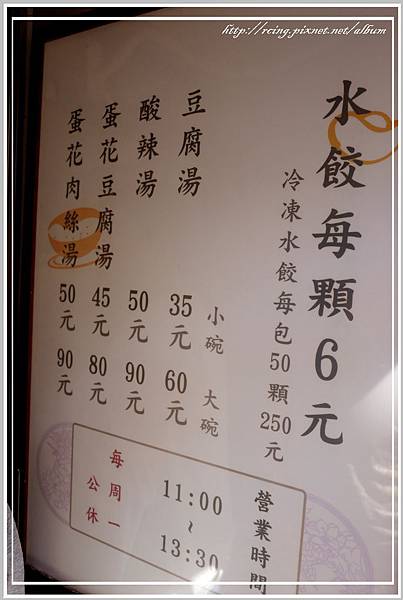 http://rcing.pixnet.net/album
水餃每顆6元
冷凍水餃每包50顆250元
小碗 大碗
豆腐湯 35元 60元
酸辣湯 50元 90元
蛋花豆腐湯 45元 80元
蛋花肉絲湯 50元 90元
營業時間
11:00
~
13:30
每周一
公休